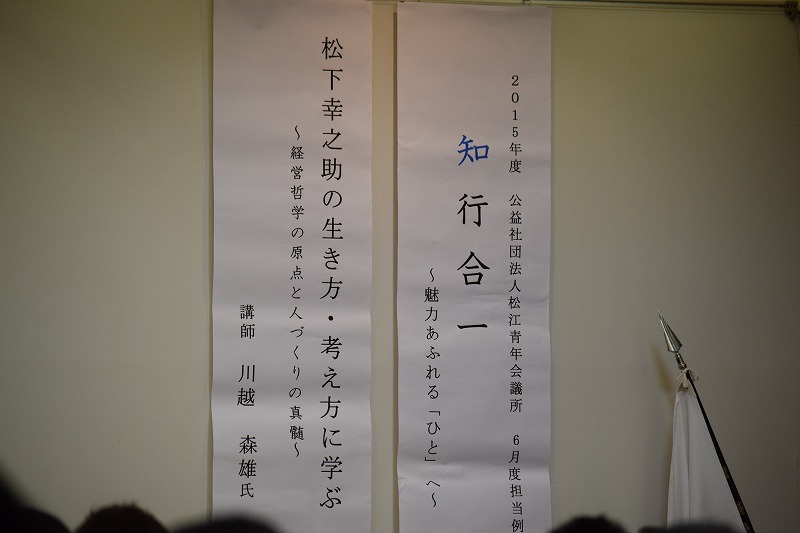 2015年度 公益社団法人松江青年会議所 6月度担当例
知行合一
～魅力あふれる「ひと」へ～
松下幸之助の生き方・考え方に学ぶ
～経営哲学の原点と人づくりの真髄～
講師 川越 森雄氏